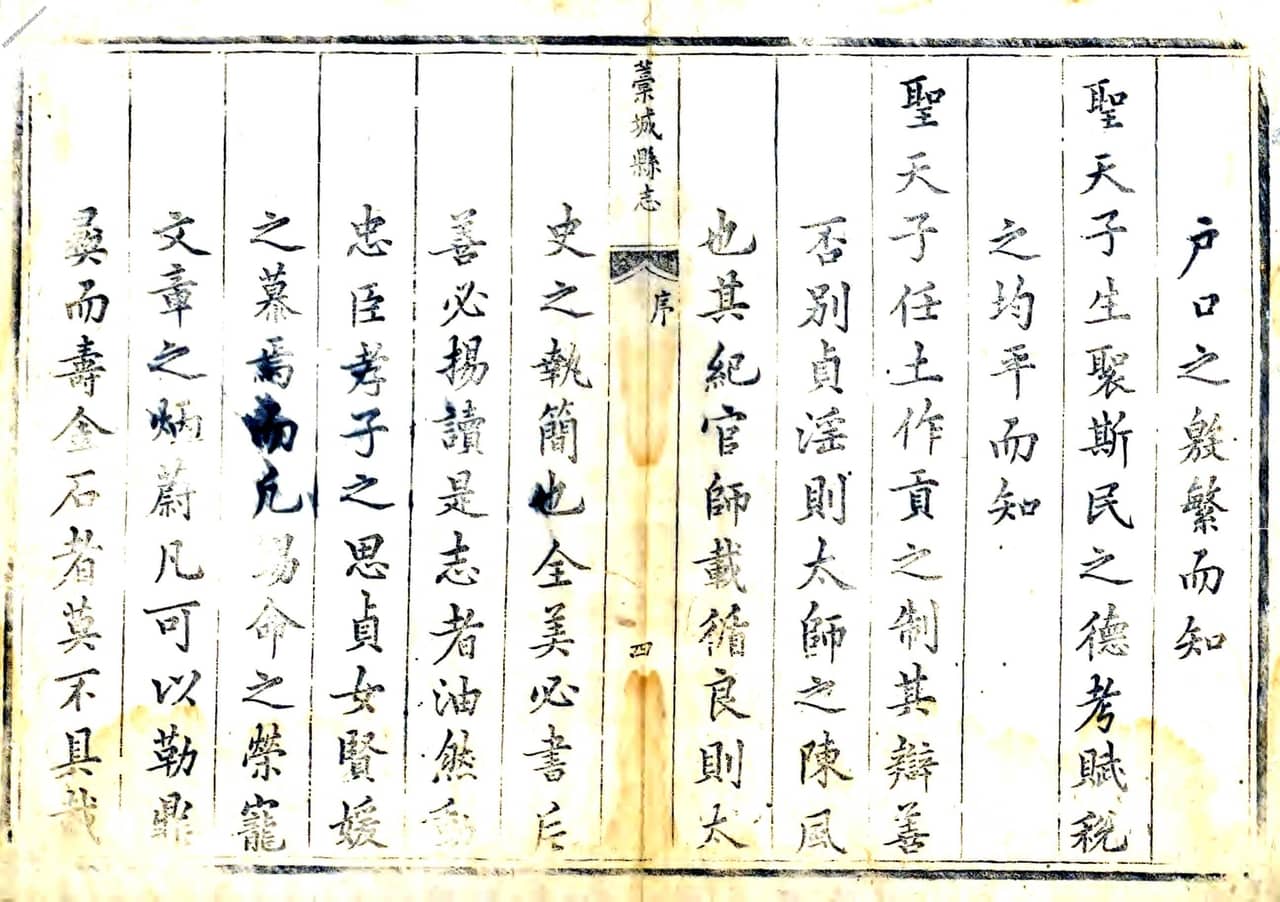 户口之殷繁而知
聖天子生聚斯民之德考賦稅
之均平而知
聖天子任土作貢之制其辯善
否別貞淫則太師之陳風
也其紀官師載循良則太
藁城縣志
序
四
史之執簡也全美必書片
善必揚讀是志者油然動
忠臣孝子之思貞女賢媛
之慕焉而凡
命之榮寵
文章之炳蔚凡可以勒鼎
彞而壽金石者莫不具哉